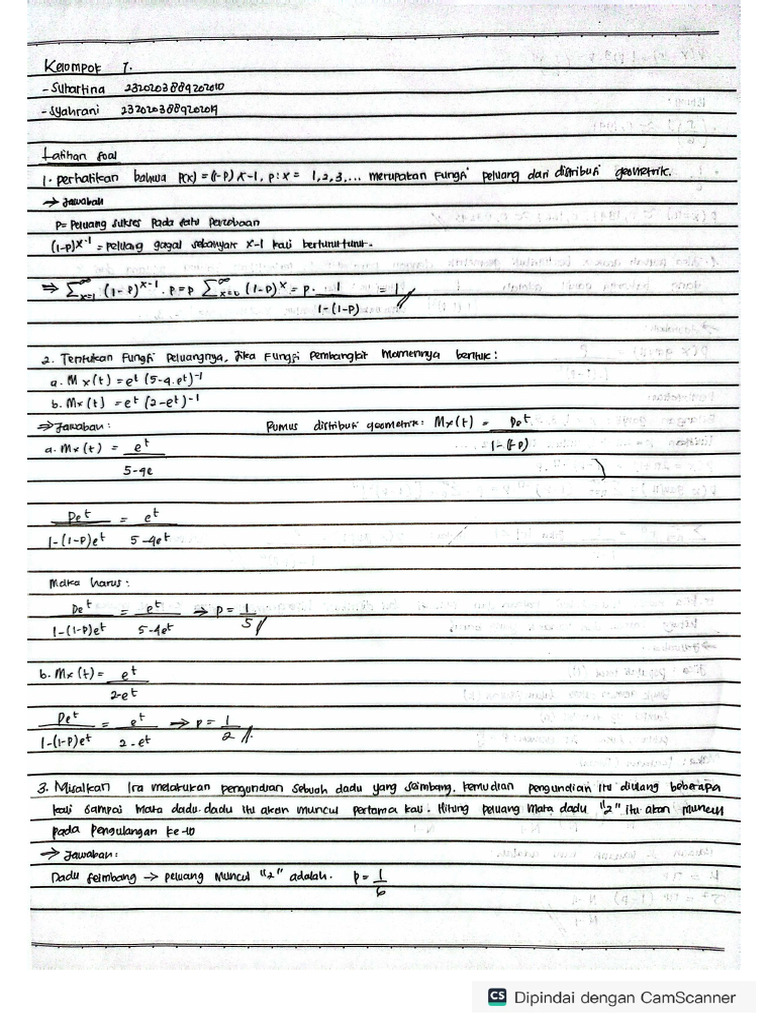 Kelompok 7.
- Suhartina 2320203889202010
- Syahrani 2320203889202019
Latihan soal
1. perhatikan bahwa P(x) = (1-P) x-1, p : x = 1,2,3,... merupakan Fungsi peluang dari distribusi geometrik.
→ Jawabah
P = Peluang sukses pada satu percobaan
(1-P)^x-1 = peluang gagal sebanyak x-1 kali berturut-turut.
⇒ ∑_x=1^∞ (1-P)^x-1 . P = P ∑_x=0^∞ (1-P)^x = P . 1/1-(1-P) = 1
2. Tentukan Fungsi peluangnya, Jika Fungsi Pembangkit Momennya bentuk:
a. Mx(t) = e^t (5-4.e^t)^-1
b. Mx(t) = e^t (2-e^t)^-1
⇒ Jawaban: Rumus distribusi geometrik: Mx(t) = Pe^t/1-(1-P)
a. Mx(t) = e^t/5-4e
Pe^t/1-(1-P)e^t = e^t/5-4e^t
Maka harus:
Pe^t/1-(1-P)e^t = e^t/5-4e^t → P = 1/5
b. Mx(t) = e^t/2-e^t
Pe^t/1-(1-P)e^t = e^t/2-e^t → P = 1/2
3. Misalkan Ira melakukan pengundian sebuah dadu yang seimbang, kemudian pengundian itu diulang beberapa
kali sampai mata dadu. dadu itu akan muncul pertama kali. Hitung peluang mata dadu "2" itu akan muncul
pada pengulangan ke-10
→ Jawaban:
Dadu seimbang → peluang muncul "2" adalah. P = 1/6
CS Dipindai dengan CamScanner